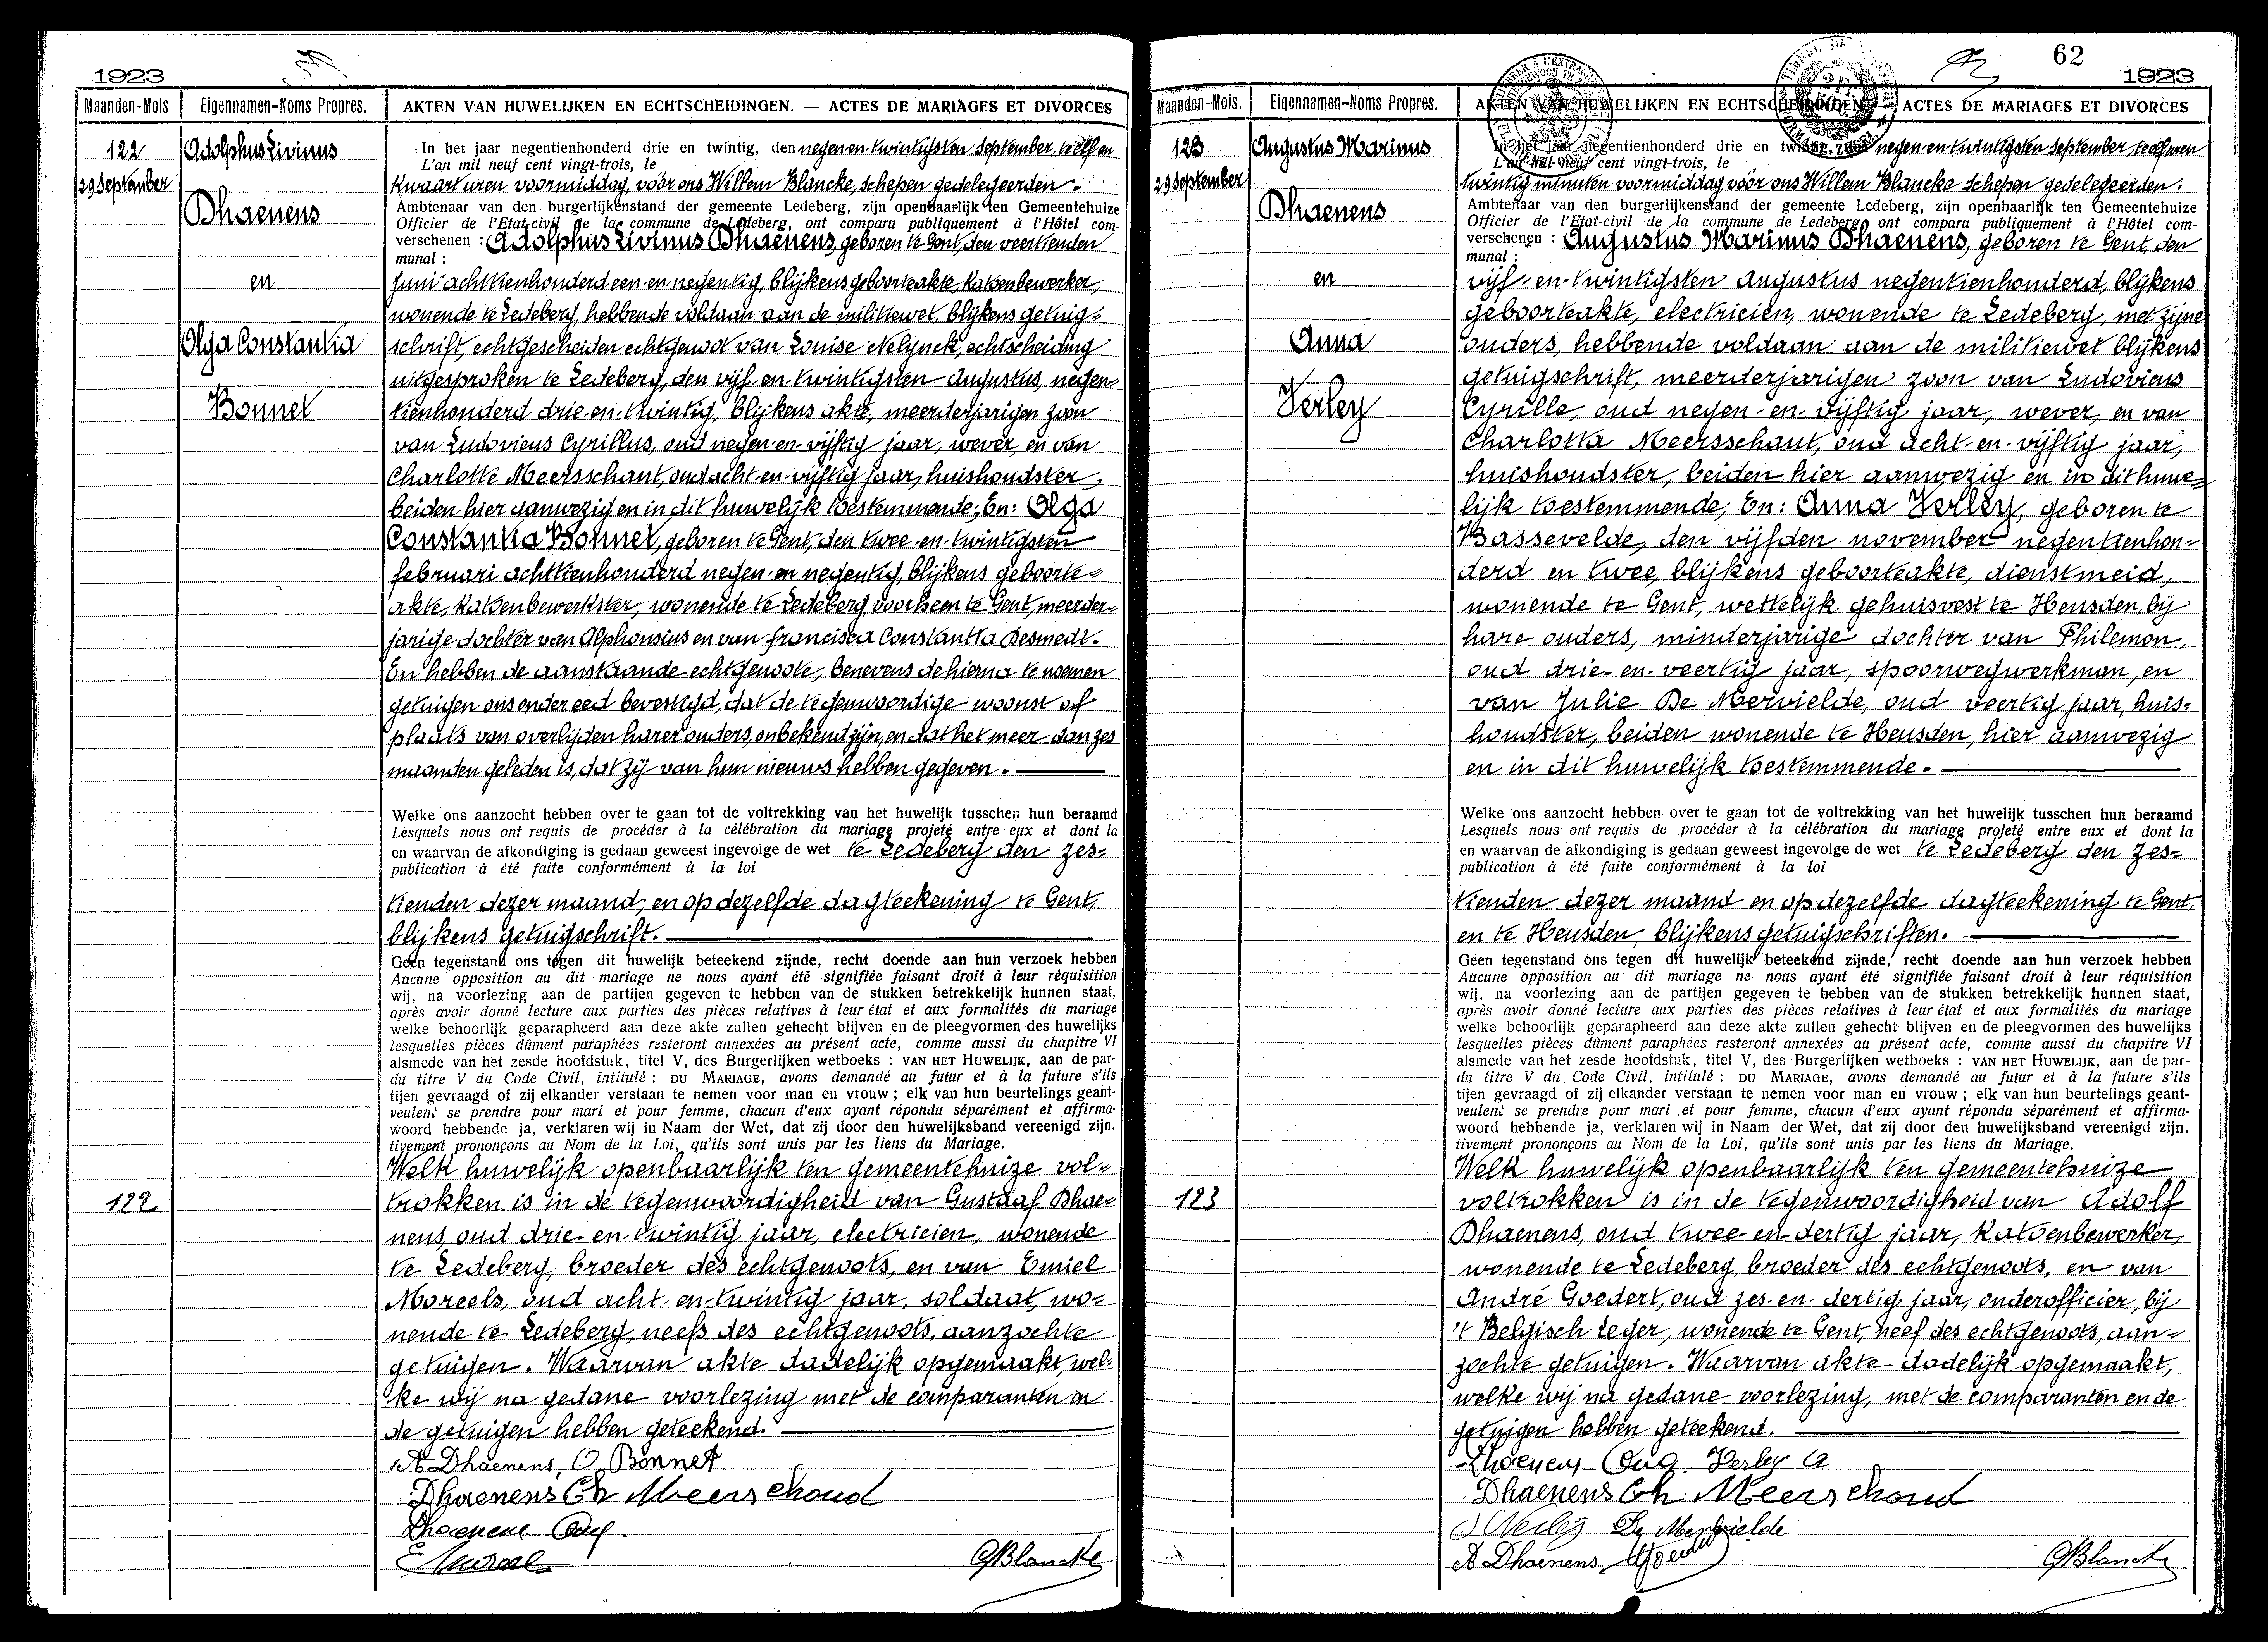 1923
Maanden-Mois. Eigennamen-Noms Propres. AKTEN VAN HUWELIJKEN EN ECHTSCHEIDINGEN. — ACTES DE MARIAGES ET DIVORCES
122
29 September
Adolphus Livinus
Dhaenens
en
Olga Constantia
Bonnet
In het jaar negentienhonderd drie en twintig, den negen-en-twintigsten September, te elf en
L'an mil neuf cent vingt-trois, le
kwaart uren voormiddag, vóór ons Willem Blancke, schepen gedelegeerden.
Ambtenaar van den burgerlijkenstand der gemeente Ledeberg, zijn openbaarlijk ten Gemeentehuize
Officier de l'Etat-civil de la commune de Ledeberg, ont comparu publiquement à l'Hôtel com-
verschenen : Adolphus Livinus Dhaenens, geboren te Gent, den veertienden
munal :
Juni achttienhonderd een-en-negentig, blijkens geboorteakte, katoenbewerker,
wonende te Ledeberg, hebbende voldaan aan de militiewet, blijkens getuig-
schrift, echtgescheiden echtgenoot van Louise Nelynck, echtscheiding
uitgesproken te Ledeberg, den vijf-en-twintigsten Augustus, negen-
tienhonderd drie-en-twintig, blijkens akte, meerderjarigen zoon
van Ludovicus Cyrillus, oud negen-en-vijftig jaar, wever, en van
Charlotte Meersschaut, oud acht-en-vijftig jaar, huishoudster,
beiden hier aanwezig en in dit huwelijk toestemmende; En: Olga
Constantia Bonnet, geboren te Gent, den twee-en-twintigsten
februari achttienhonderd negen-en-negentig, blijkens geboorte-
akte, katoenbewerkster, wonende te Ledeberg, voorheen te Gent, meerder-
jarige dochter van Alphonsius en van Francisca Constantia Desmedt.
En hebben de aanstaande echtgenoote, benevens de hierna te noemen
getuigen ons onder eed bevestigd, dat de tegenwoordige woonst of
plaats van overlijden harer ouders, onbekend zijn, en dat het meer dan zes
maanden geleden is, dat zij van hun nieuws hebben gegeven.
Welke ons aanzocht hebben over te gaan tot de voltrekking van het huwelijk tusschen hun beraamd
Lesquels nous ont requis de procéder à la célébration du mariage projeté entre eux et dont la
en waarvan de afkondiging is gedaan geweest ingevolge de wet te Ledeberg den zes-
publication à été faite conformément à la loi
tienden dezer maand, en op dezelfde dagteekening te Gent,
blijkens getuigschrift.
Geen tegenstand ons tegen dit huwelijk beteekend zijnde, recht doende aan hun verzoek hebben
Aucune opposition au dit mariage ne nous ayant été signifiée faisant droit à leur réquisition
wij, na voorlezing aan de partijen gegeven te hebben van de stukken betrekkelijk hunnen staat,
après avoir donné lecture aux parties des pièces relatives à leur état et aux formalités du mariage
welke behoorlijk geparapheerd aan deze akte zullen gehecht blijven en de pleegvormen des huwelijks
lesquelles pièces dûment paraphées resteront annexées au présent acte, comme aussi du chapitre VI
alsmede van het zesde hoofdstuk, titel V, des Burgerlijken wetboeks : VAN HET HUWELIJK, aan de par-
du titre V du Code Civil, intitulé : DU MARIAGE, avons demandé au futur et à la future s'ils
tijen gevraagd of zij elkander verstaan te nemen voor man en vrouw ; elk van hun beurtelings geant-
veulent se prendre pour mari et pour femme, chacun d'eux ayant répondu séparément et affirma-
woord hebbende ja, verklaren wij in Naam der Wet, dat zij door den huwelijksband vereenigd zijn.
tivement prononçons au Nom de la Loi, qu'ils sont unis par les liens du Mariage.
Welk huwelijk openbaarlijk ten gemeentehuize vol-
122
trokken is in de tegenwoordigheid van Gustaaf Dhae-
nens, oud drie-en-twintig jaar, electricien, wonende
te Ledeberg, broeder des echtgenoots, en van Emiel
Moreels, oud acht-en-twintig jaar, soldaat, wo-
nende te Ledeberg, neef des echtgenoots, aanzochte
getuigen. Waarvan akte dadelijk opgemaakt, wel-
ke wij na gedane voorlezing met de comparanten en
de getuigen hebben geteekend.
A Dhaenens, O Bonnet
Dhaenens Ch Meerschoud
Dhaenens
GBlancke
62
1923
Maanden-Mois. Eigennamen-Noms Propres. AKTEN VAN HUWELIJKEN EN ECHTSCHEIDINGEN. — ACTES DE MARIAGES ET DIVORCES
123
29 September
Augustus Marinus
Dhaenens
en
Anna
Verley
In het jaar negentienhonderd drie en twintig, den negen-en-twintigsten September te elf uren
L'an mil neuf cent vingt-trois, le
twintig minuten voormiddag vóór ons Willem Blancke Schepen gedelegeerden.
Ambtenaar van den burgerlijkenstand der gemeente Ledeberg, zijn openbaarlijk ten Gemeentehuize
Officier de l'Etat-civil de la commune de Ledeberg ont comparu publiquement à l'Hôtel com-
verschenen : Augustus Marinus Dhaenens, geboren te Gent, den
munal :
vijf-en-twintigsten Augustus negentienhonderd, blijkens
geboorteakte, electricien, wonende te Ledeberg, met zijne
ouders, hebbende voldaan aan de militiewet blijkens
getuigschrift, meerderjarigen zoon van Ludovicus
Cyrille, oud negen-en-vijftig jaar, wever, en van
Charlotta Meersschaut, oud acht-en-vijftig jaar,
huishoudster, beiden hier aanwezig en in dit huwe-
lijk toestemmende; En: Anna Verley, geboren te
Bassevelde, den vijfden november negentienhon-
derd en twee, blijkens geboorteakte, dienstmeid,
wonende te Gent, wettelijk gehuisvest te Heusden, bij
hare ouders, minderjarige dochter van Philemon,
oud drie-en-veertig jaar, spoorwegwerkman, en
van Julie De Mervielde, oud veertig jaar, huis-
houdster, beiden wonende te Heusden, hier aanwezig
en in dit huwelijk toestemmende.
Welke ons aanzocht hebben over te gaan tot de voltrekking van het huwelijk tusschen hun beraamd
Lesquels nous ont requis de procéder à la célébration du mariage projeté entre eux et dont la
en waarvan de afkondiging is gedaan geweest ingevolge de wet te Ledeberg den zes-
publication à été faite conformément à la loi
tienden dezer maand en op dezelfde dagteekening te Gent,
en te Heusden, blijkens getuigschriften.
Geen tegenstand ons tegen dit huwelijk beteekend zijnde, recht doende aan hun verzoek hebben
Aucune opposition au dit mariage ne nous ayant été signifiée faisant droit à leur réquisition
wij, na voorlezing aan de partijen gegeven te hebben van de stukken betrekkelijk hunnen staat,
après avoir donné lecture aux parties des pièces relatives à leur état et aux formalités du mariage
welke behoorlijk geparapheerd aan deze akte zullen gehecht blijven en de pleegvormen des huwelijks
lesquelles pièces dûment paraphées resteront annexées au présent acte, comme aussi du chapitre VI
alsmede van het zesde hoofdstuk, titel V, des Burgerlijken wetboeks : VAN HET HUWELIJK, aan de par-
du titre V du Code Civil, intitulé : DU MARIAGE, avons demandé au futur et à la future s'ils
tijen gevraagd of zij elkander verstaan te nemen voor man en vrouw ; elk van hun beurtelings geant-
veulent se prendre pour mari et pour femme, chacun d'eux ayant répondu séparément et affirma-
woord hebbende ja, verklaren wij in Naam der Wet, dat zij door den huwelijksband vereenigd zijn.
tivement prononçons au Nom de la Loi, qu'ils sont unis par les liens du Mariage.
Welk huwelijk openbaarlijk ten gemeentehuize
123
voltrokken is in de tegenwoordigheid van Adolf
Dhaenens, oud twee-en-dertig jaar, katoenbewerker,
wonende te Ledeberg, broeder des echtgenoots, en van
André Goedert, oud zes-en-dertig jaar, onderofficier, bij
't Belgisch Leger, wonende te Gent, neef des echtgenoots, aan-
zochte getuigen. Waarvan akte dadelijk opgemaakt,
welke wij na gedane voorlezing, met de comparanten en de
getuigen hebben geteekend.
Dhaenens Aug Verley A
Dhaenens Ch Meerschoud
Verley De Mervielde
A Dhaenens
GBlancke